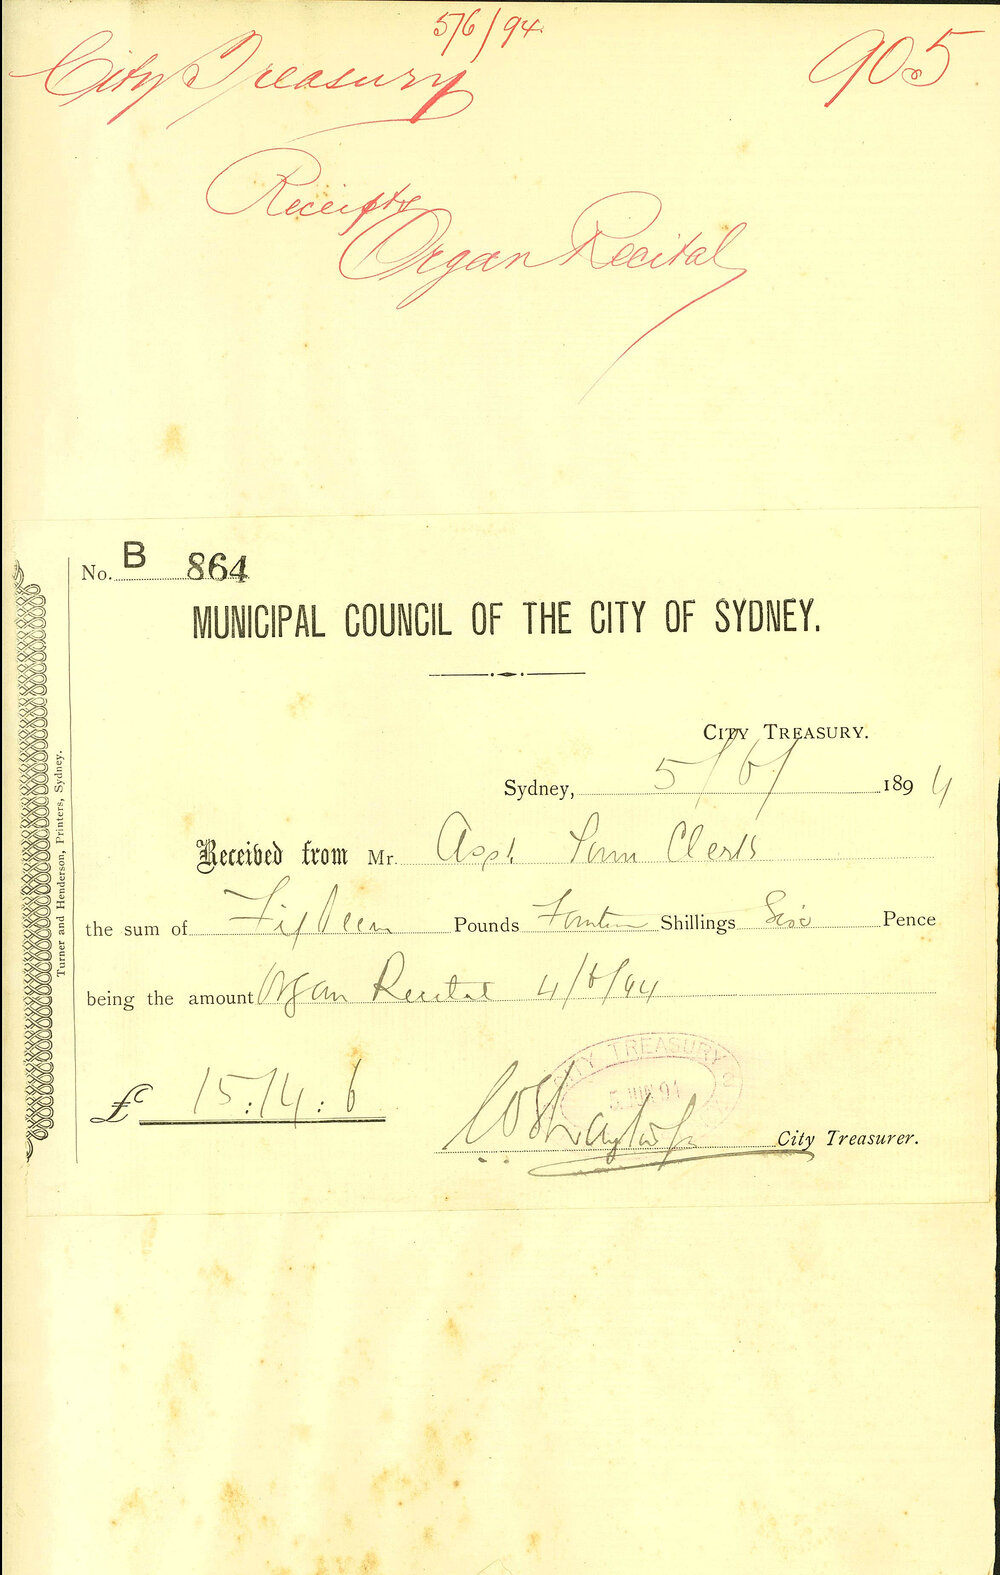 5/6/94
City Treasury
905
Receipts
Organ Recital
No. B 864
MUNICIPAL COUNCIL OF THE CITY OF SYDNEY.
CITY TREASURY.
Sydney, 5/6/ 1894
Received from Mr. Asst Town Clerk
the sum of Fifteen Pounds Fourteen Shillings Six Pence
being the amount Organ Recital 4/6/94
£ 15:14:6
CITY TREASURY
5 JUN 94
City Treasurer.
Turner and Henderson, Printers, Sydney.